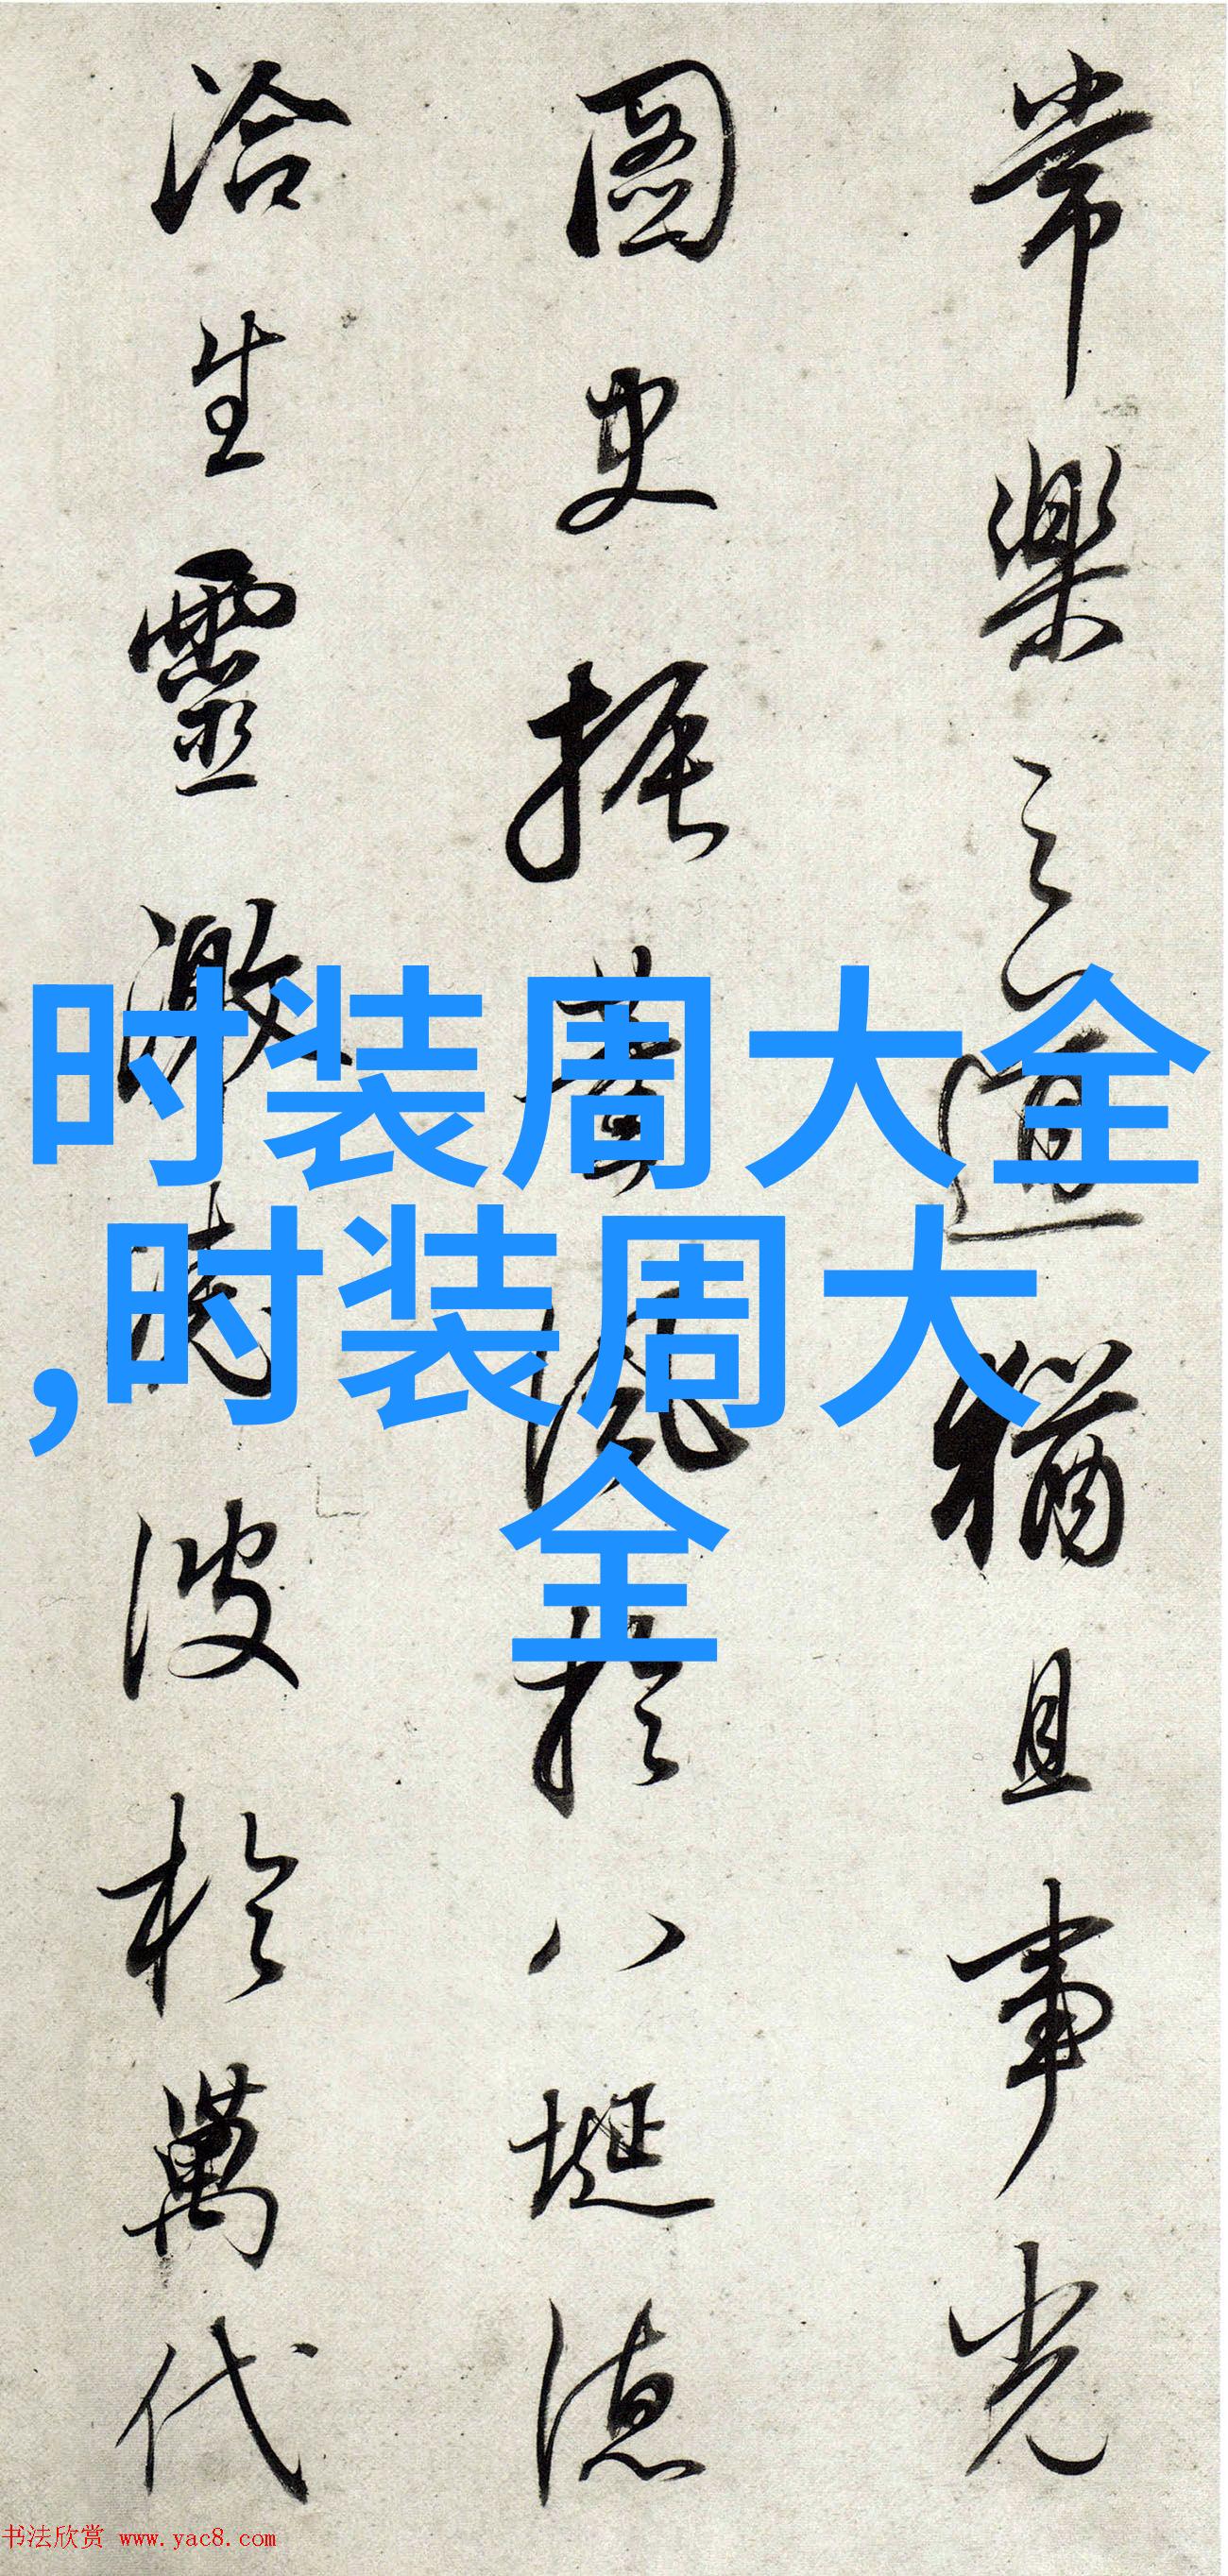 常樂之道猶且事光
圖史振黃風於八埏德
洽生靈激波於萬代
时装周大全
,时装周大
全
书法欣赏 www.yac8.com